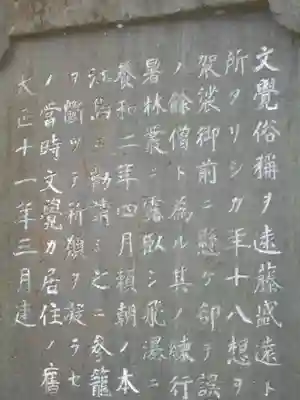 文覺俗稱ヲ遠藤盛遠ト
所タリシガ年十八想ヲ
袈裟御前ニ懸ケ却テ誤
ノ餘僧ト為ル其ノ練行
暑林叢ニ露臥シ飛瀑ニ
養和二年四月頼朝ノ本
江島ニ勧請シ之ニ参籠
ヲ斷ツテ祈願ヲ凝ラセ
ノ當時文覺ガ居住ノ舊
大正十一年三月建